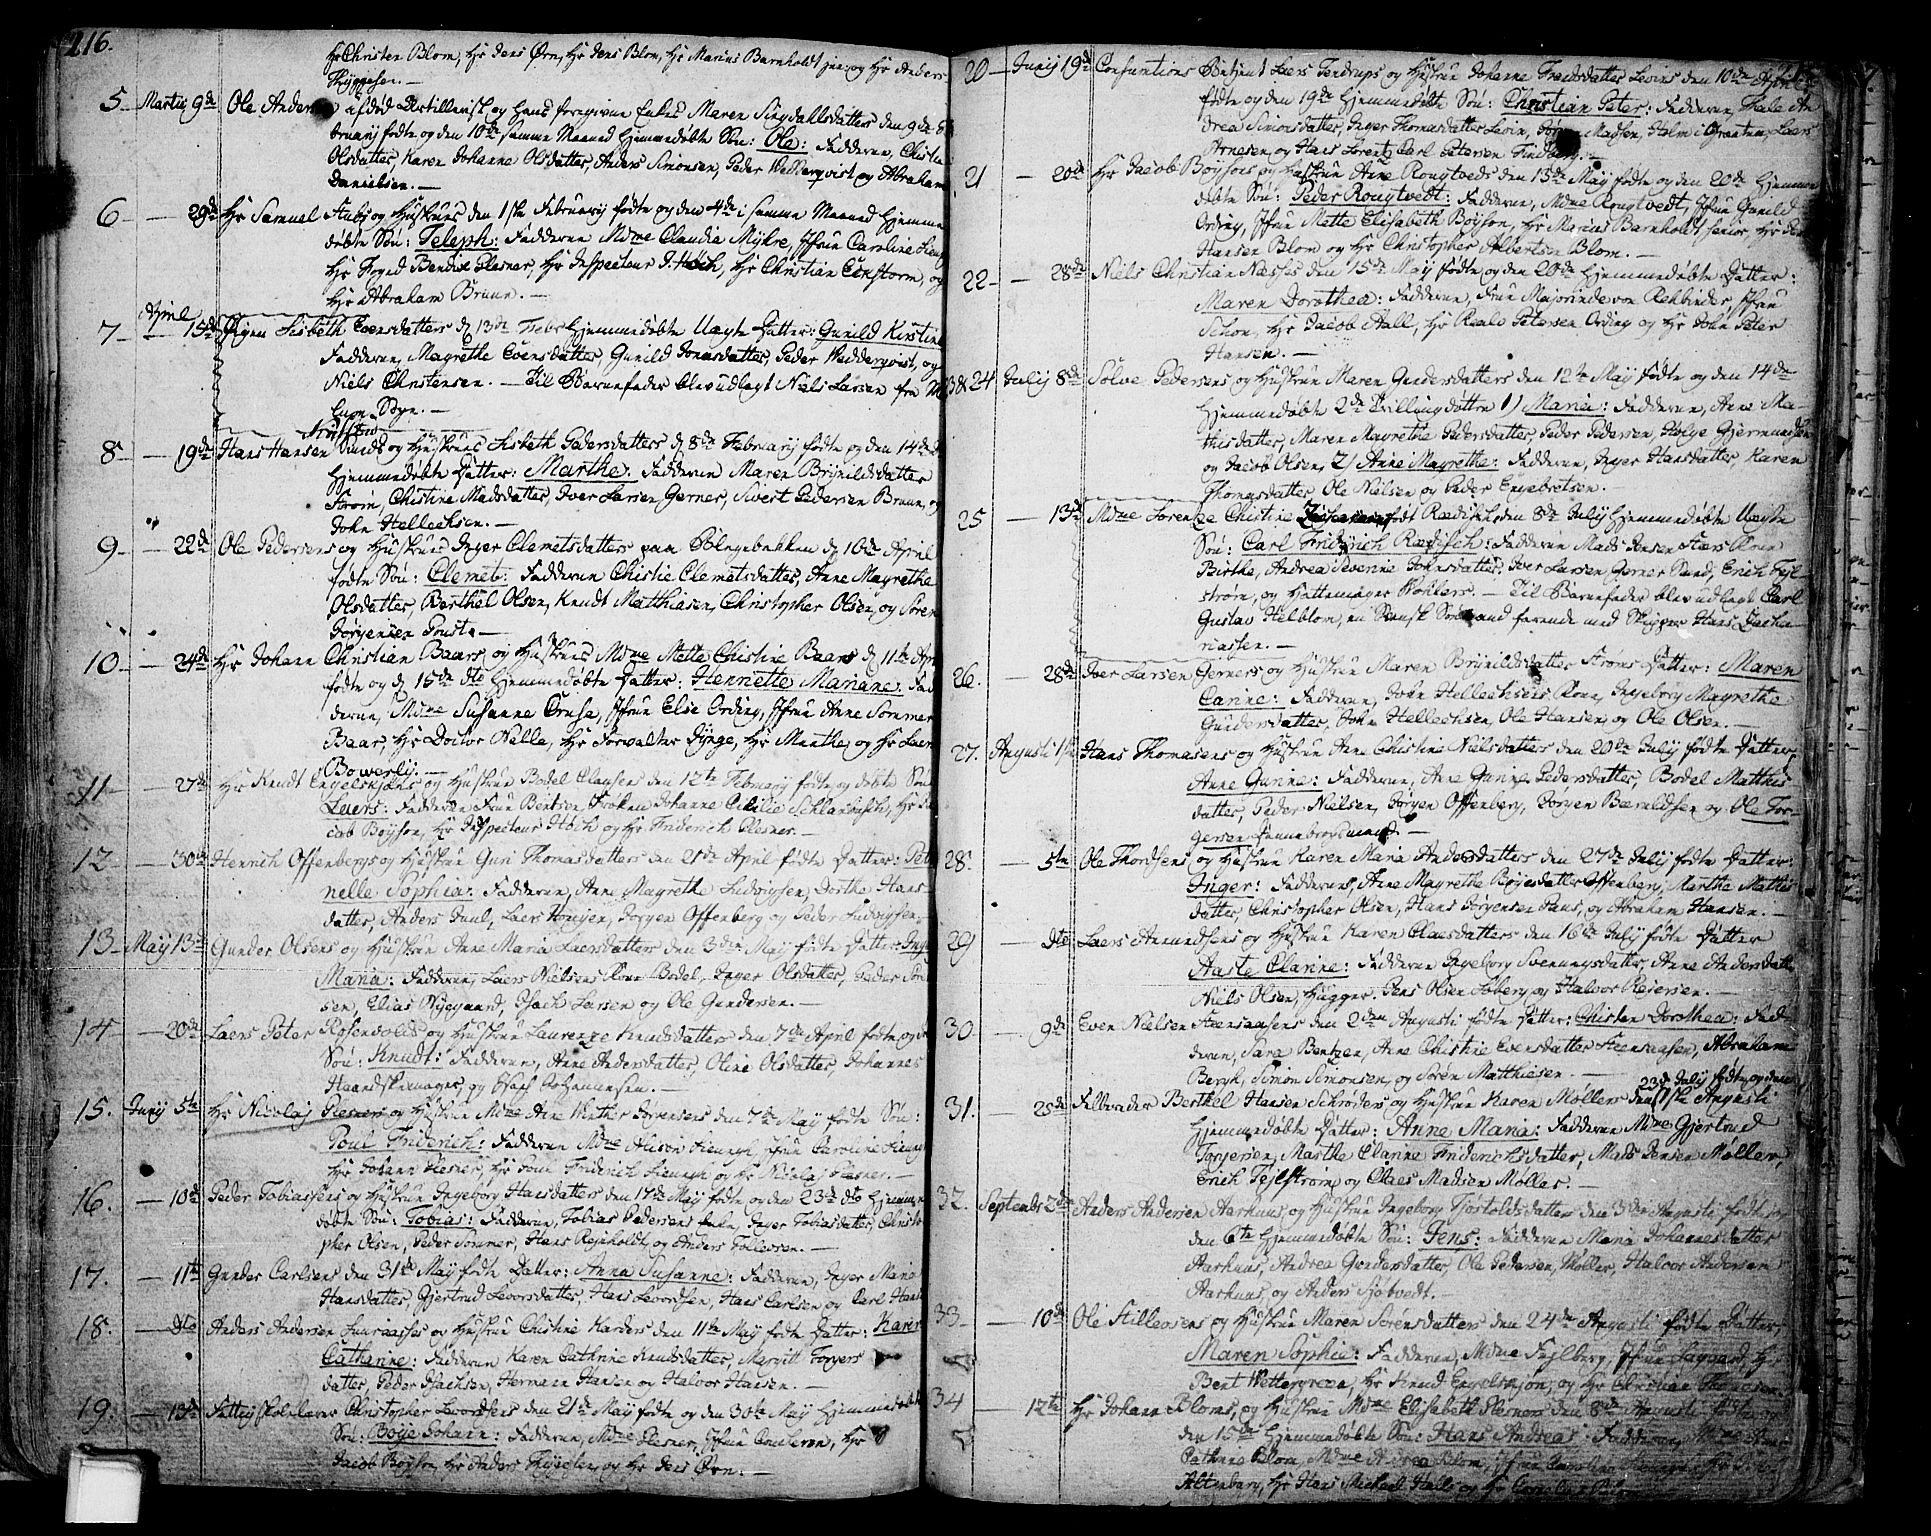 216.
Hr Christen Blom, Hr Jens Örn, Hr Jens Blom, Hr Marius Barnholdt jun: og Hr Anders
Thygesen. —
5. Martii 9de Ole Andersen afdöd Artillerist og Hans foregivne Enkes Maren Singdahlsdatters den 9de Fe
bruarij födte og den 10de samme Maaned Hjemmedöbte Sön: Ole: Fadderne, Christie
Olsdatter, Karen Johanne Olsdatter, Anders Simonsen, Peder Wedderqvist og Abraham
Danielsen. —
6 — 29de Hr Samuel Aubj og Hustrues den 1ste Februarij födte og den 4de i samme Maaned Hjemme
döbte Sön: Teleph: Fadderne Mdme Claudia Mykre, Jfrue Caroline
Hr Foged Bendix Plesner, Hr Inspecteur I. Höch, Hr Christian Censtorm, og
Hr Abraham Bruun. —
April
7 — 15de Pigen Lisbeth Evensdatters d 13de Febr Hjemmedöbte Uægte Datter: Gunild Kirstine
Fadderne, Magrethe Evensdatter, Gunild Jonasdatter, Peder Wedderqvist, og
Niels Christensen. — Til Barnefader blev udlagt Niels Larsen fra
Sogn. —
8 — 19de Hans Hansen Sunds og Hustrues Lisbeth Pedersdatters d 8de Februarij födte og den 14de
Hjemmedöbte Datter: Marthe: Fadderne Maren Brynildsdatter
Ström, Christine Madsdatter, Iver Larsen Gerner, Sivert Pedersen Bruun, og
John Hellechsen. —
9 — 22de Ole Pedersens og Hustrues Inger Clemetsdatters paa Bölgebakken d 10de April
födte Sön: Clemet: Fadderne Christie Clemetsdatter, Anne Magrethe
Olsdatter, Berthel Olsen, Knudt Matthiasen, Christopher Olsen, og Sören
Jörgensen Poust. —
10 — 24de Hr Johann Christian Baars og Hustrues Mdme Mette Christine Baars d 11te April
födte og d 15de dto Hjemmedöbte Datter: Henriette Mariane: Fad
derne, Mdme Susanne Cruse, Jfrue Else Ording, Jfrue Anne Sommer
Baar, Hr Doctor Nelle, Hr Forvalter Dynge, Hr Manthe, og Hr Laers
Bowerly. —
11 — 27de Hr Knudt Engelskjöns og Hustrue Bodel Clausen den 12te Februarij födte og döbte Sön
Laers: Fadderne Frue Bentsen, Fröken Johanne Cecilie Schlanbusch, Hr Ja
cob Boyson, Hr Inspecteur Höch og Hr Friderich Plesner. —
12 — 30te Henrich Offenbergs og Hustrue Guri Thomasdatters den 21de April födte Datter: Pet
nelle Sophia: Fadderne, Anne Magrethe Ludvigsen, Dorthe Hans
datter, Anders Juul, Laers Houyen, Jörgen Offenberg og Peder Ludvigsen. —
13 — May 13de Gunder Olsens og Hustrue Anne Maria Laersdatters den 3die May födte Datter: Inge
Maria: Fadderne, Laers Nielsens Kone Bodel, Inger Olsdatter, Peder Sören
sen, Elias Nyegaard, Isach Larsen og Ole Gundersen. —
14 — 20de Laers Peter Rosenvolds og Hustrue Laurenze Knudsdatters den 7de April födte og
Sön: Knudt: Fadderne, Anne Andersdatter, Oline Olsdatter, Johannes
Haandskemager, og Johannesen. —
15. Junij 5te Hr Nicolaj Plesners og Hustrue Mdme Ane Wather Jörgensens den 7de May födte Sön:
Poul Friderich: Fadderne Mdme Alison Kierulf, Jfrue Caroline
Hr Johann Plesner, Hr Poul Friderich og Hr Nicolaj Plesner. —
16. — 10de Peder Tobiassens og Hustrue Ingeborg Hansdatters den 17de May födte og den 23de dto Hjemme
döbte Sön: Tobias: Fadderne, Tobias Pedersens Enke, Inger Tobiasdatter, Christo
pher Olsen, Peder Sommer, Hans Reinholdt og Anders Tollevsen. —
17. — 11te Gunder Carlsens den 31te May födte Datter: Anna Susanne: Fadderne, Inger Maria
Hansdatter, Gjertrud Levorsdatter, Hans Levordsen, Hans Carlsen og Carl Hans
18. — Dto Anders Andersen Luuraasses og Hustrue Christine Karders den 11te May födte Datter: Karen
Cathrine: Fadderne Karen Cathrine Knudsdatter, Margitt Torgers
datter, Peder Isachsen, Hermann Hansen og Halvor Hansen. —
19. — 13de Fattigskolelærer Christopher Levordsens den 21de May födte og den 30te May Hjemmedöbte
Sön: Boye Johann: Fadderne, Mdme Plesner, Jfrue Hr
Jacob Boyson, Hr Anders Thygesen, og Hr Jens Örn. —
20 — Junij 19de Consumtions Betjent Laers Tendrups og Hustrue Johanne Fredsdatters Levins den 10de April
födte og den 19de Hjemmedöbte Sön: Christian Peter: Fadderne, Thale An
drea Simonsdatter, Inger Thomasdatter Levin, Jörgen Madsen, Holm i Graatem, Laers
Arnesen og Hans Lorentz Carl Petersen Findberg. —
21 — 20de Hr Jacob Boysons og Hustrue Anne Rougtveds den 13de May födte og den 20de Hjemme
döbte Sön: Peder Rougtvedt: Fadderne, Mdme Rougtvedt, Jfrue Gunild
Ording, Jfrue Mette Elisabeth Boyson, Hr Marius Barnholdt senior, Hr Jens
Hansen Blom og Hr Christopher Albertsen Blom. —
22 — — 28de Niels Christian Næsses den 15de May födte og den 20de Hjemmedöbte Datter:
Maren Dorothea: Fadderne, Frue Majorinde von Rehbinder, Jfrue
Schow, Hr Jacob Aall, Hr Realv Petersen Ording og Hr John Peter
Hansen. —
23 & 24 Julij 8de Solve Pedersens, og Hustrue Maren Gundersdatters den 12te May födte og den 14de
Hjemmedöbte 2de Tvillingdöttre 1) Maria: Fadderne, Anne Ma-
thisdatter, Maren Magrethe Pedersdatter, Peder Pedersen, Helge Gjermundsen
og Jacob Olsen, 2) Anne Magrethe: Fadderne, Inger Hansdatter, Karen
Thomasdatter, Ole Nielsen og Peder Engebretsen. —
25 — 13de Mdme Lorenze Christine födt Rædisch, den 8de Julij Hjemmedöbte Uægte
Sön: Carl Friderich Rædisch: Fadderne Mads Jensen Aars Kone
Birthe, Andrea Severine Johnsdatter, Iver Larsen Gerner Sund, Erich Tejl-
ström, og Hattemager Wohlers. — Til Barnefader blev udlagt Carl
Gustav Helblom, en Svensk Sömand farende med Skipper Hans Zacha-
riassen. —
26. — 28de Iver Larsen Gerners og Hustrue Maren Brynildsdatter Ströms Datter: Maren
Carine: Fadderne, John Hellechsens Kone, Ingeborg Magrethe
Gundersdatter, John Hellechsen, Ole Hansen, og Ole Olsen. —
27. Augusti 1ste Hans Thomasens og Hustrue Ane Christine Nielsdatters den 20de Julij födte Datter,
Anne Gunine: Fadderne, Ane Gunine Pedersdatter, Bodel Matthis
datter, Peder Nielsen, Jörgen Offenberg, Jörgen Bæraldsen og Ole Tor-
gersen Dannebrogsmand. —
28. — 5te Ole Thordsens og Hustrue Karen Maria Andersdatters den 27de Julij födte Datter:
Inger: Fadderne, Anne Magrethe Röyesdatter Offenberg, Marthe Mathis
datter, Christopher Olsen, Hans Jörgensen Paus, og Abraham Hansen. —
29 — dto Laers Amundsens og Hustrue Karen Claesdatters den 16de Julij födte Datter
Aaste Clarine: Fadderne Ingeborg Svenungsdatter, Anne Andersdatter,
Niels Olsen, Hugger, Jens Olsen Löberg og Halvor Reiersen. —
30 — 9de Even Nielsen Steensaasens den 2den Augusti födte Datter: Chisten Dorthea: Fad-
derne, Sara Bentzen, Anne Christine Evensdatter Steensaasen, Abraham
Beryk, Simon Simonsen, og Sören Matthiesen. —
23de Julij födte, og den
31. 25de Feltvæder Berthel Hansen Schröders og Hustrue Karen Möllers den 1ste Augusti
Hjemmedöbte Datter: Anne Maria: Fadderne Mdme Gjertrud
Torjersen, Marthe Clarine Frideriksdatter, Mads Jensen Möller,
Erich Tejlström, og Claes Madsen Möller. —
32. Septembr 2den Anders Andersen Aarhuus, og Hustrue Ingeborg Tjöstolds datter den 3die Augusti födte og
den 6te Hjemmedöbte Sön: Jens: Fadderne Maria Johannesdatter
Aarhuus, Andrea Gundersdatter, Ole Pedersen, Möller, Halvor Andersen
Aarhuus, og Anders Sjötvedt. —
33 — 10de Ole Stillevsens og Hustrue Maren Sörensdatters den 24de Augusti födte Datter,
Maren Sophia: Fadderne, Mdme Fejlberg, Jfrue Hr
Bent Wettergreen, Hr Knud Engelskjön, og Hr Christian Thomesen.
34 — 12te Hr Johann Bloms, og Hustrue Mdme Elisabeth Plesners den 8de Augusti födte og
den 15de Hjemmedöbte Sön: Hans Andreas: Fadderne Mdme
Cathrine Blom, Mdme Andrea Blom, Jfrue Caroline
Altenburg, Hr Hans Michael og Hr Cornelius Blom